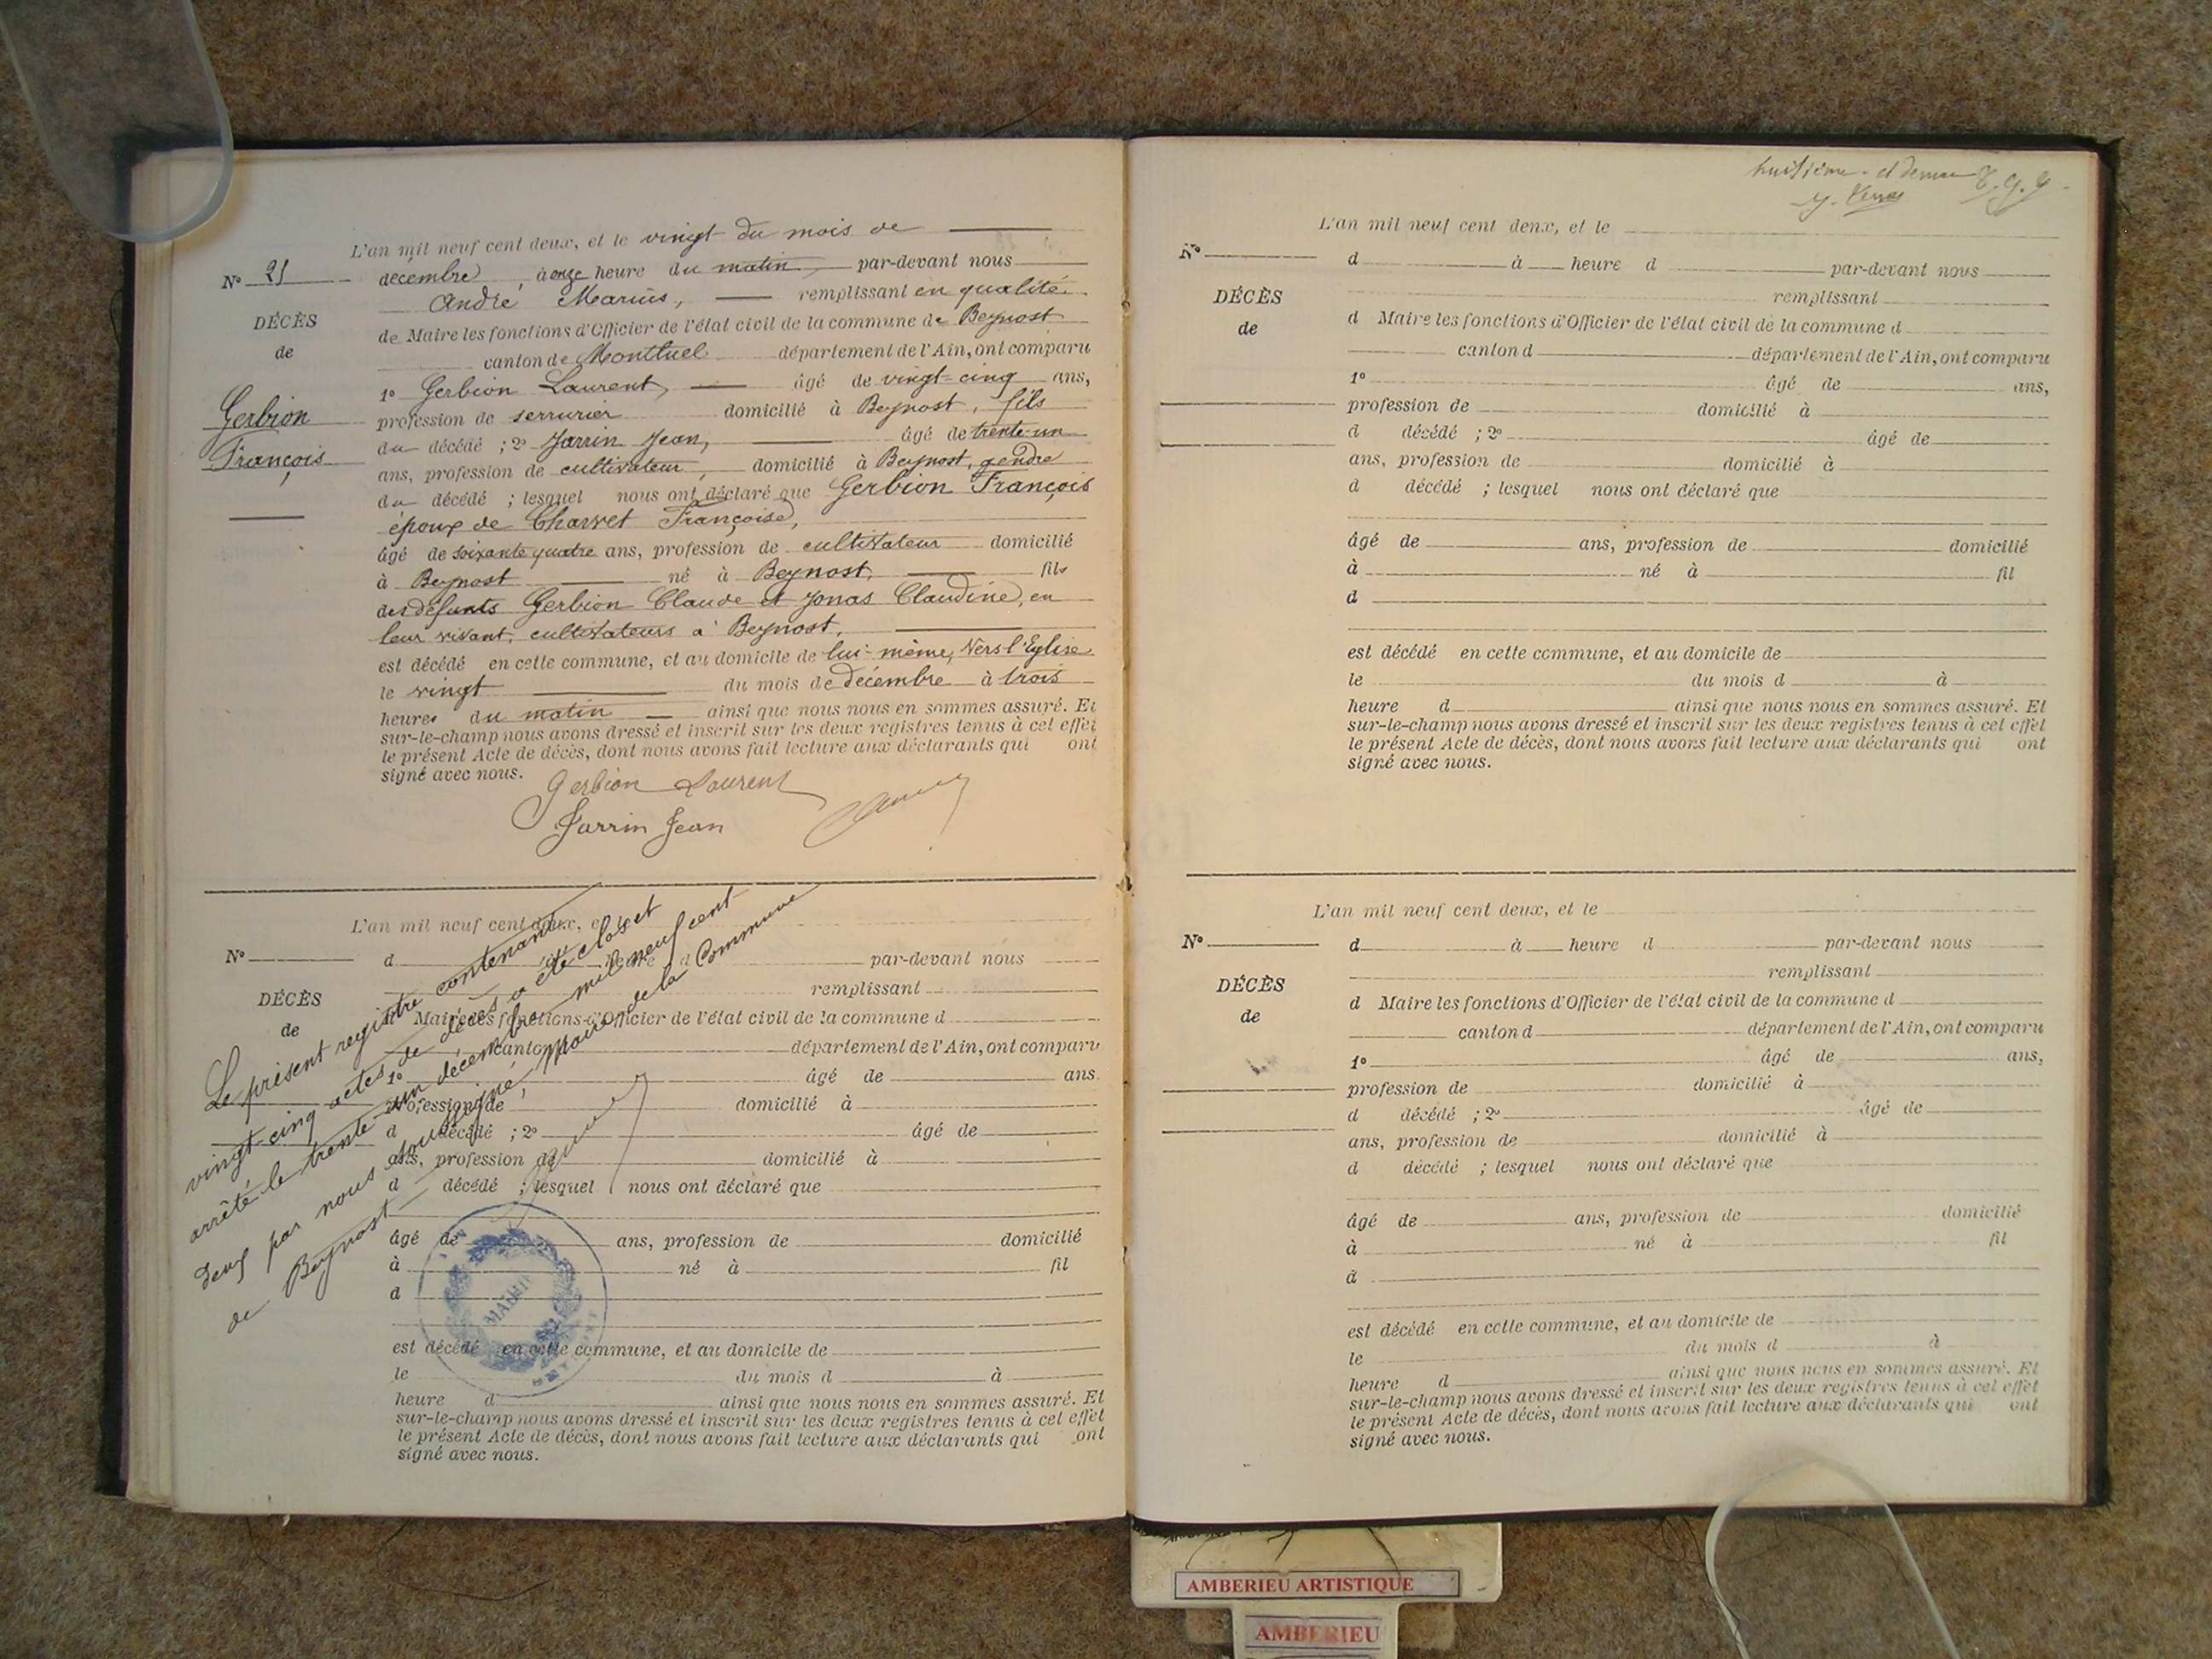 L'an mil neuf cent deux, et le vingt du mois de
N° 25
décembre, à onze heure du matin par-devant nous
André Marius, remplissant en qualité
DÉCÈS
de Maire les fonctions d'Officier de l'état civil de la commune de Beynost
de
canton de Montluel département de l'Ain, ont comparu
1° Gerbion Laurent, âgé de vingt-cinq ans,
Gerbion
profession de serrurier domicilié à Beynost, fils
du décédé ; 2° Jarrin Jean, âgé de trente-un
François
ans, profession de cultivateur, domicilié à Beynost, gendre
du décédé ; lesquel nous ont déclaré que Gerbion François
époux de Charvet Françoise,
âgé de soixante quatre ans, profession de cultivateur domicilié
à Beynost né à Beynost, fils
des défunts Gerbion Claude et Jonas Claudine, en
leur vivant, cultivateurs à Beynost,
est décédé en cette commune, et au domicile de lui-même, Vers l'Eglise
le vingt du mois de décembre à trois
heures du matin ainsi que nous nous en sommes assuré. Et
sur-le-champ nous avons dressé et inscrit sur les deux registres tenus à cet effet
le présent Acte de décès, dont nous avons fait lecture aux déclarants qui ont
signé avec nous.
Gerbion Laurent
Jarrin Jean
L'an mil neuf cent deux, et le
N°
d à heure d par-devant nous
remplissant
DÉCÈS
d Maire les fonctions d'Officier de l'état civil de la commune d
de
canton d département de l'Ain, ont comparu
1° âgé de ans,
profession de domicilié à
d décédé ; 2° âgé de
ans, profession de domicilié à
d décédé ; lesquel nous ont déclaré que
âgé de ans, profession de domicilié
à né à fil
d
est décédé en cette commune, et au domicile de
le du mois d à
heure d ainsi que nous nous en sommes assuré. Et
sur-le-champ nous avons dressé et inscrit sur les deux registres tenus à cet effet
le présent Acte de décès, dont nous avons fait lecture aux déclarants qui ont
signé avec nous.
Le présent registre contenant
vingt-cinq actes de décès a été clos et
arrêté le trente-un décembre mil neuf cent
deux par nous soussigné, Maire de la Commune
de Beynost
MAIRIE
huitième et
L'an mil neuf cent deux, et le
N°
d à heure d par-devant nous
DÉCÈS
remplissant
de
d Maire les fonctions d'Officier de l'état civil de la commune d
canton d département de l'Ain, ont comparu
1° âgé de ans,
profession de domicilié à
d décédé ; 2° âgé de
ans, profession de domicilié à
d décédé ; lesquel nous ont déclaré que
âgé de ans, profession de domicilié
à né à fil
d
est décédé en cette commune, et au domicile de
le du mois d à
heure d ainsi que nous nous en sommes assuré. Et
sur-le-champ nous avons dressé et inscrit sur les deux registres tenus à cet effet
le présent Acte de décès, dont nous avons fait lecture aux déclarants qui ont
signé avec nous.
L'an mil neuf cent deux, et le
N°
d à heure d par-devant nous
remplissant
DÉCÈS
d Maire les fonctions d'Officier de l'état civil de la commune d
de
canton d département de l'Ain, ont comparu
1° âgé de ans,
profession de domicilié à
d décédé ; 2° âgé de
ans, profession de domicilié à
d décédé ; lesquel nous ont déclaré que
âgé de ans, profession de domicilié
à né à fil
d
est décédé en cette commune, et au domicile de
le du mois d à
heure d ainsi que nous nous en sommes assuré. Et
sur-le-champ nous avons dressé et inscrit sur les deux registres tenus à cet effet
le présent Acte de décès, dont nous avons fait lecture aux déclarants qui ont
signé avec nous.
AMBERIEU ARTISTIQUE
AMBERIEU